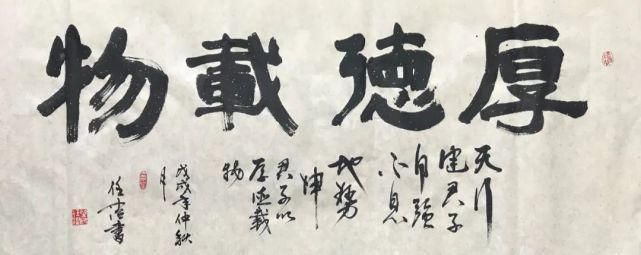 厚德載物
天行
健君子
自强
不息
地势
坤
君子以
厚德載
物
戊戌年仲秋
月
任
書